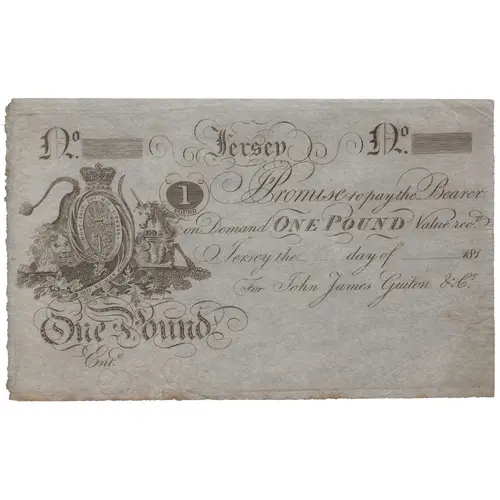 No. Jersey No.
1
POUND
I Promise to pay the Bearer
on Demand ONE POUND Value recd.
Jersey the day of 181
For John James Guiton & Co.
One Pound
Entd.